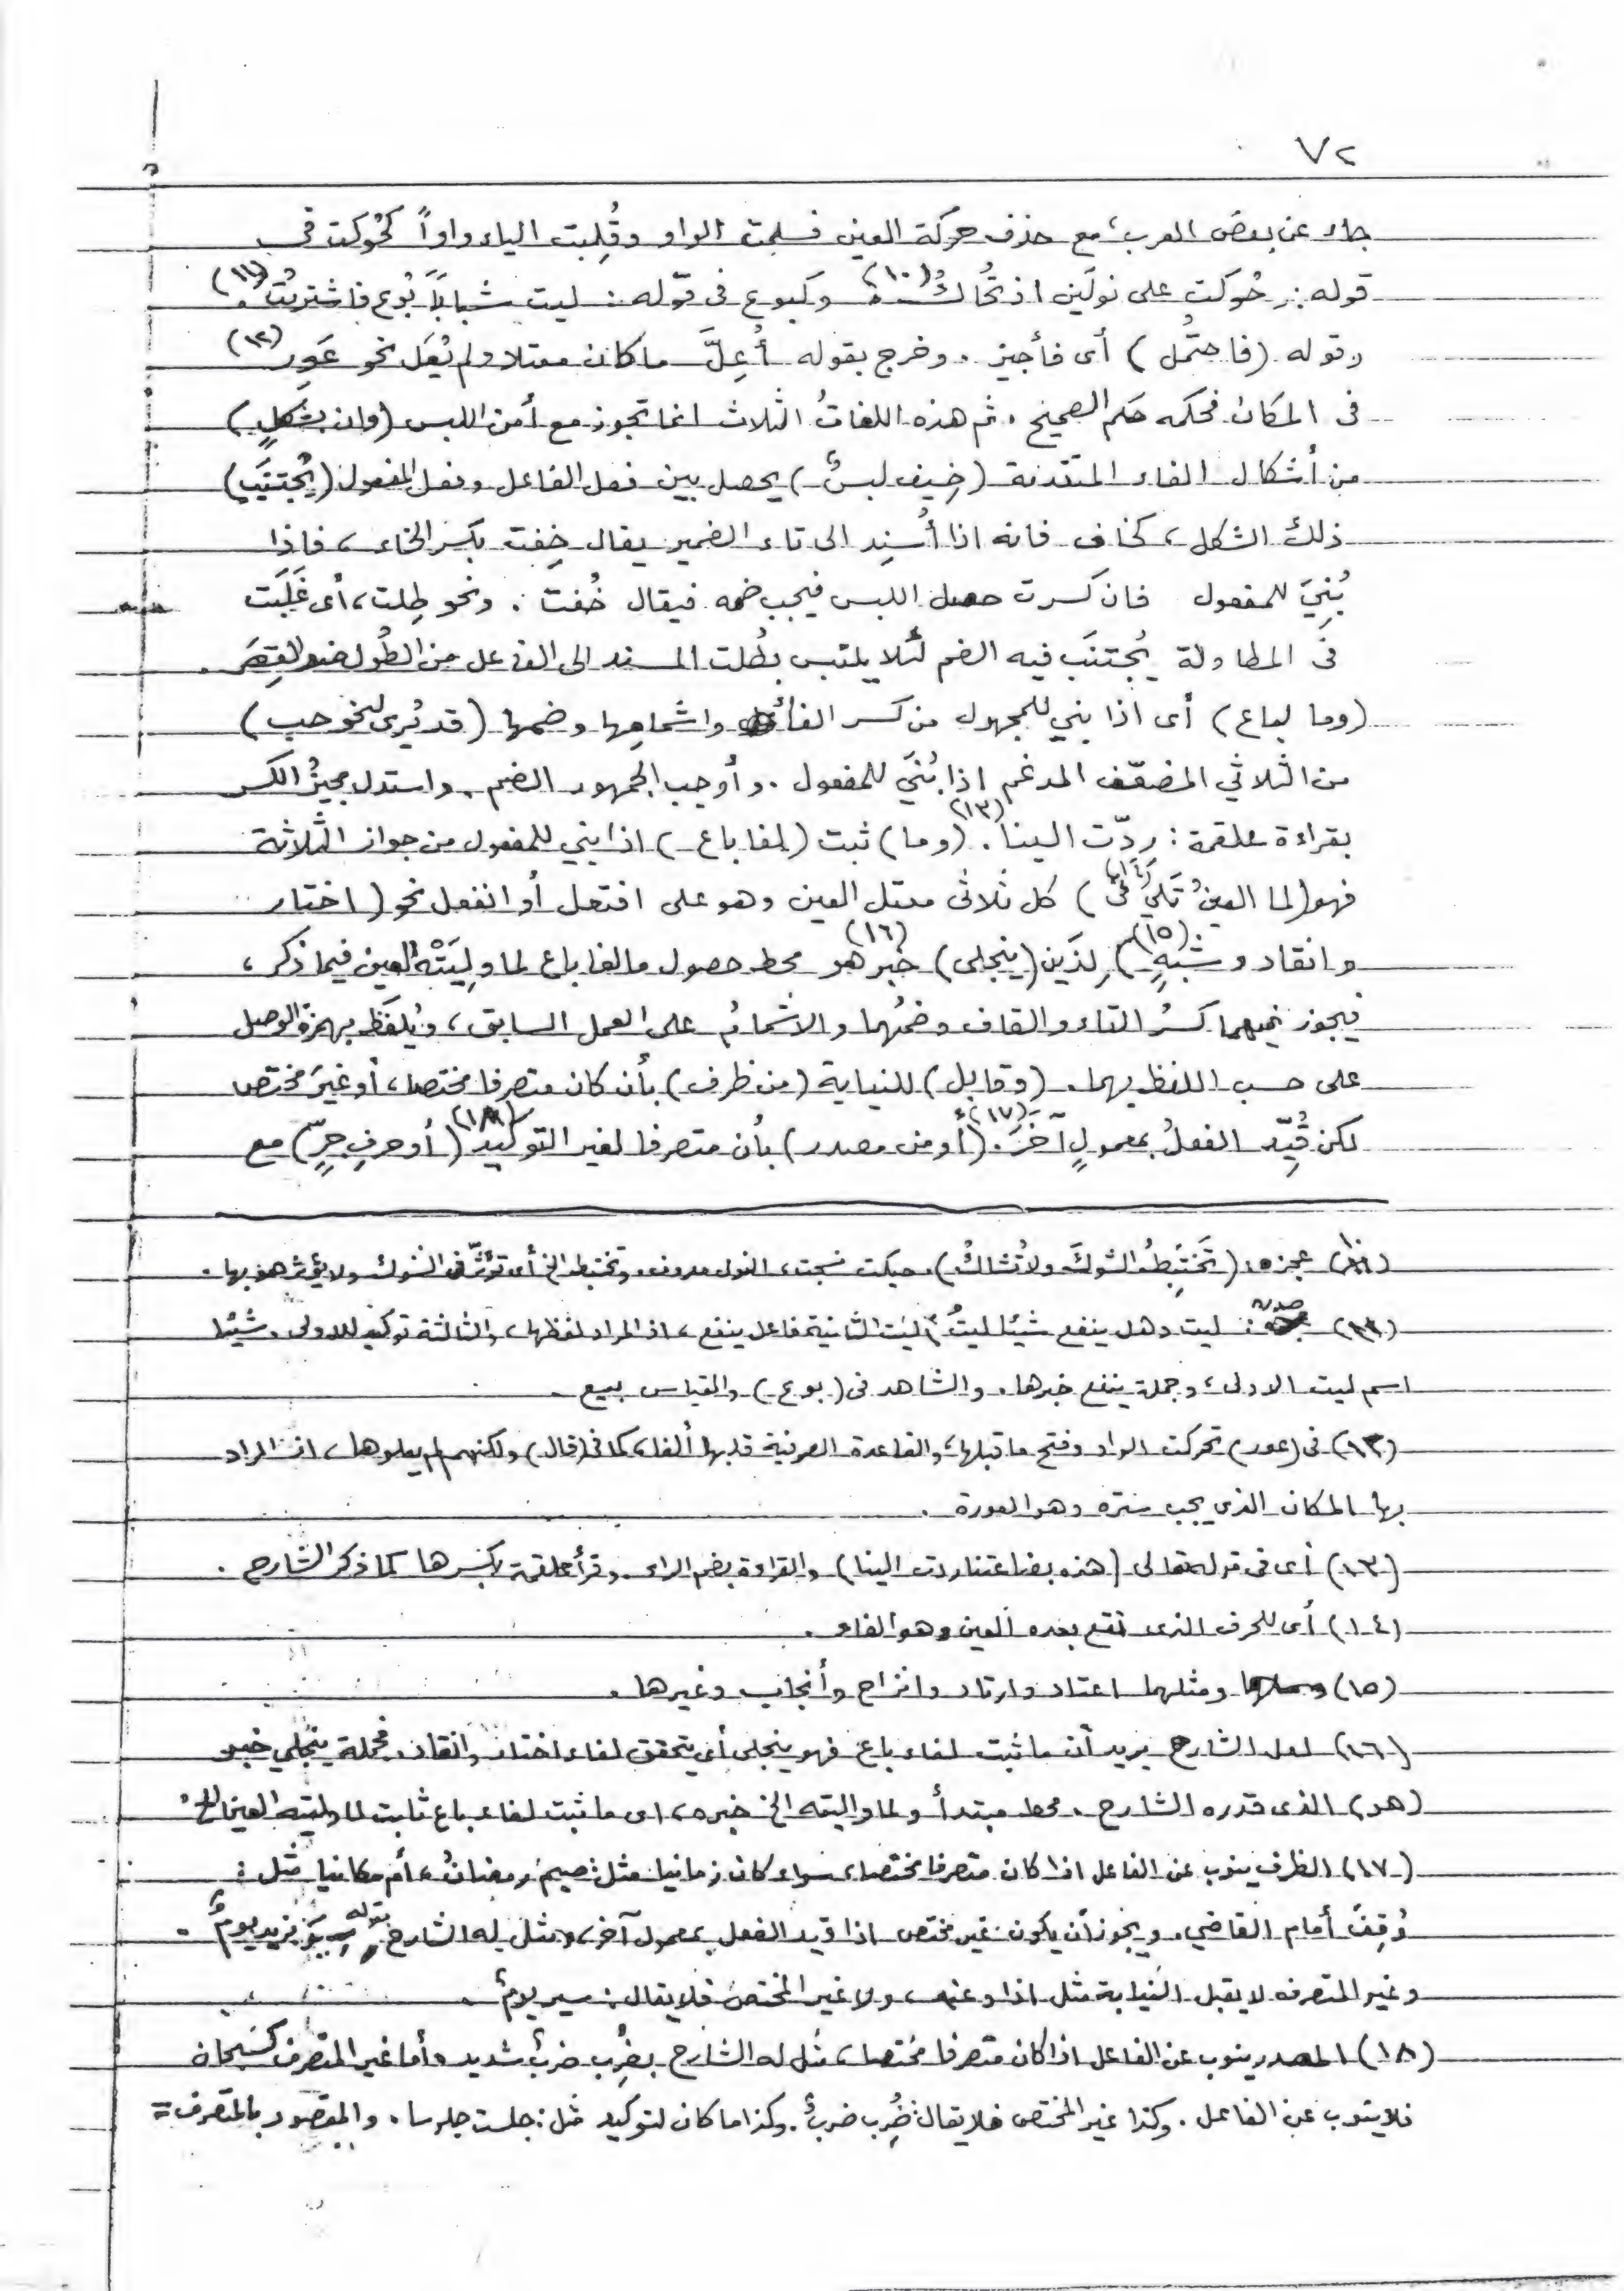 ٧٢
جاء عن بعض العرب، مع حذف حركة العين فسلمت الواو وقُلِبت الياء واواً كحُوكت في
قوله: حُوكَت على نولَين اذ تُحاكُ (١٠). وكبوع فى قوله: ليت شباباً بُوع فاشتريتُ (١١).
وقوله (فاحتُمل) أى فأجيز. وخرج بقوله أُعِلَّ ماكان معتلا ولم يُعَل نحو عَوِر (١٢)
فى المكان فحكمه حكم الصحيح. ثم هذه اللغاتُ الثلاث انما تجوز مع أمن اللبس (وان بشكلٍ)
من أشكال الفاء المتقدمة (خِيف لبسٌ) يحصل بين فعل الفاعل وفعل المفعول (يُجتنَب)
ذلك الشكل، كخاف فانه اذا أُسنِد الى تاء الضمير يقال خِفت بكسر الخاء، فاذا
بُنِيَ للمفعول فان كسرت حصل اللبس فيجب ضمه فيقال خُفت. ونحو طِلت، أى غَلَبَت
فى المطاولة يُجتنَب فيه الضم لئلا يلتبس بطُلت المسند الى الفاعل من الطُول ضد القِصَر.
(وما لباع) أى اذا بني للمجهول من كسر الفاء واشمامها وضمها (قد يُرى لنحو حب)
من الثلاثي المضعّف المدغم اذا بُنيَ للمفعول. وأوجب الجمهور الضم. واستدل مجيزُ الكسر
بقراءة علقمة: رِدّت الينا (١٣). (وما) ثبت (لفا باع) اذا بني للمفعول من جواز الثلاثة
فهو (لما العينُ تَلي (١٤) فى) كل ثلاثى معتل العين وهو على افتعل أو انفعل نحو (اختار
وانقاد وشبهٍ (١٥)) لذَين (ينجلى) خبر هو (١٦) محط حصول مالفا باع لما وليَتْه العين فيما ذكر،
فيجوز فيهما كسرُ التاء والقاف وضمُهما والاشمامُ على العمل السابق، ويُلفَظ بهمزة الوصل
على حسب اللفظ بهما. (وقابل) للنيابة (من ظرف) بأن كان متصرفا مختصا، أو غيرَ مختص
لكن قُيِّد الفعلُ بمعمولٍ آخَرَ (١٧). (أو من مصدر) بأن متصرفا لغير التوكيد (١٨) (أو حرفِ جرٍّ) مع
(١٠) عجزه: (تَختَبِطُ الشوكَ ولا تُشاكُ). حيكت نسجت، النول معروف، وتختبط الخ أى تؤثّر فى الشوك ولا يؤثر هو بها.
(١١) صدره: ليت وهل ينفع شيئا ليتُ، ليت الثانية فاعل ينفع، اذ المراد لفظها، والثالثة توكيد للاولى. شيئا
اسم ليت الاولى، وجملة ينفع خبرها. والشاهد فى (بوع) والقياس بيع.
(١٢) فى (عور) تحركت الواو وفتح ما قبلها، والقاعدة الصرفية قلبها ألفا، كما فى (قال) ولكنهم لم يعلوها، اذ المراد
بها المكان الذى يجب ستره وهو العورة.
(١٣) أى فى قوله تعالى (هذه بضاعتنا ردت الينا) والقراءة بضم الراء. وقرأ علقمة بكسرها كما ذكر الشارح.
(١٤) أى للحرف الذى تقع بعده العين وهو الفاء.
(١٥) ومثلهما اعتاد وارتاد وانزاح وأنجاب وغيرها.
(١٦) لعل الشارح يريد أن ما ثبت لفاء باع فهو ينجلى أي يتحقق لفاء اختار وانقاد. فجملة ينجلي خبر
(هو) الذى قدره الشارح. محط مبتدأ ولما واليته الخ خبره، اى ما ثبت لفاء باع ثابت لما وليته العين الخ.
(١٧) الظرف ينوب عن الفاعل اذا كان متصرفا مختصا، سواء كان زمانيا مثل: صيمَ رمضانُ، أم مكانيا مثل:
وُقِفَ أمام القاضي. ويجوز أن يكون غير مختص اذا قيد الفعل بمعمول آخر، ومثل له الشارح بقوله سِيرَ بزيد يومٌ.
وغير المتصرف لا يقبل النيابة مثل اذا وعند، ولا غير المختص فلا يقال: سير يومٌ.
(١٨) المصدر ينوب عن الفاعل اذا كان متصرفا مختصا، مثل له الشارح بضُرِب ضربٌ شديد وأما غير المتصرف كسبحان
فلا ينوب عن الفاعل. وكذا غير المختص فلا يقال: ضُرِب ضربٌ. وكذا ما كان لتوكيد مثل: جلست جلوسا. والمقصود بالمتصرف =